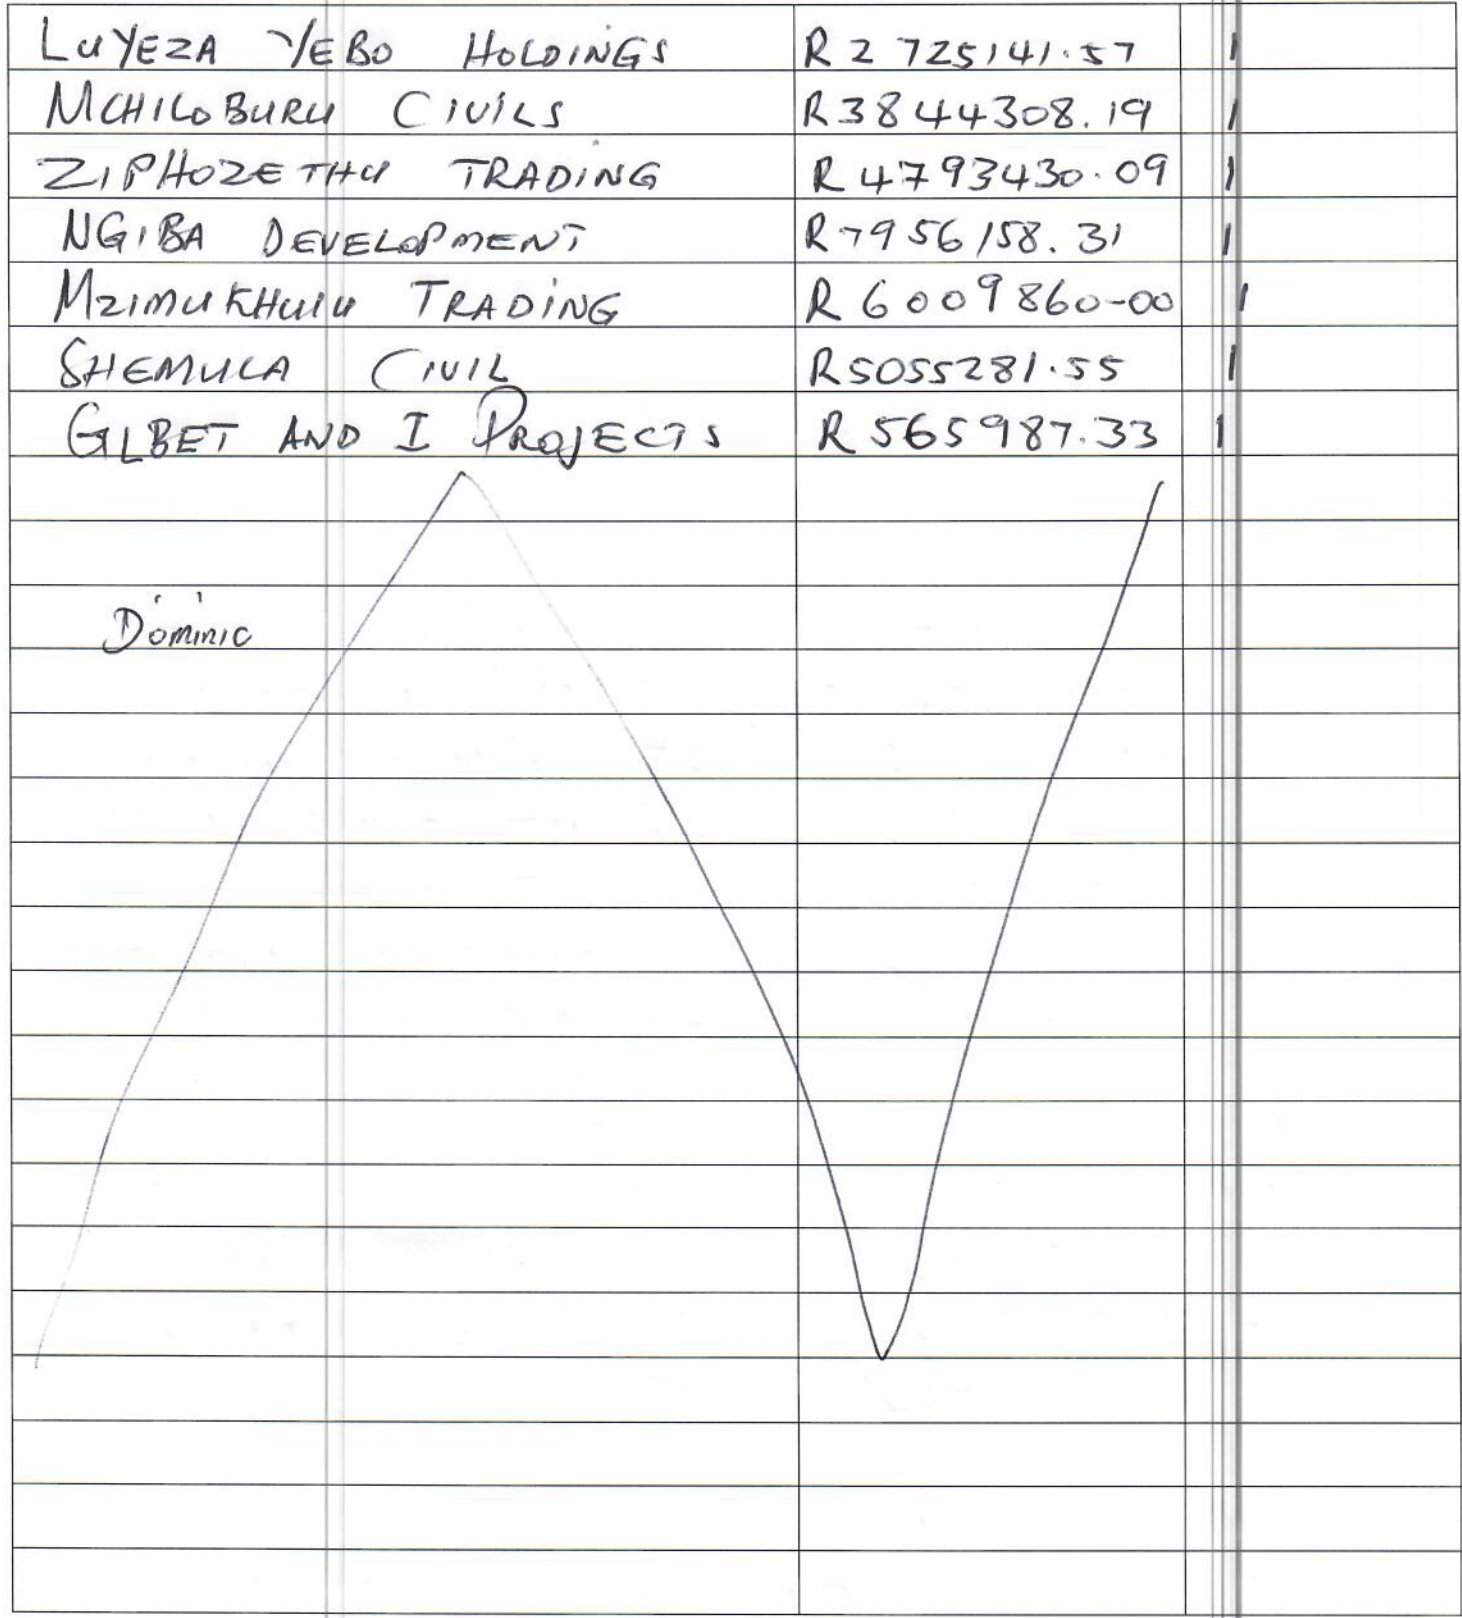 LUYEZA YEBO HOLDINGS R 2 725141.57 1
MCHILOBURU CIVILS R3844308.19 1
ZIPHOZETHU TRADING R4793430.09 1
NGIBA DEVELOPMENT R7956158.31 1
MZIMUKHULU TRADING R 6009860-00 1
SHEMULA CIVIL R5055281.55 1
GLBET AND I PROJECTS R565987.33 1
Dominic